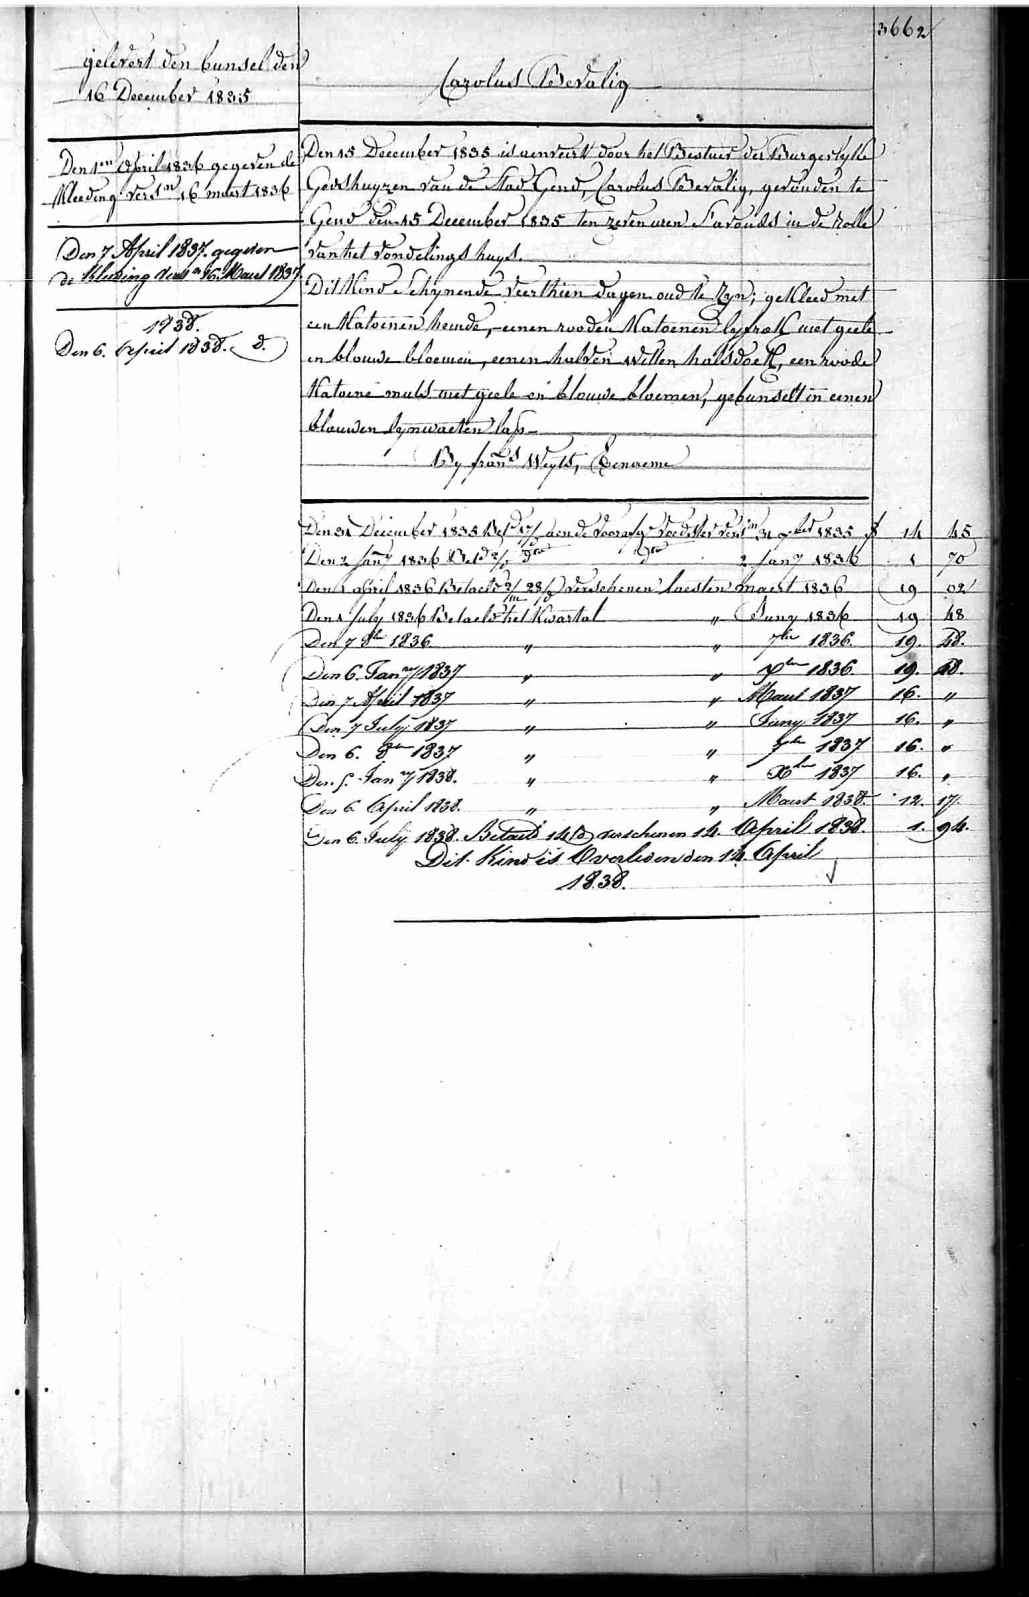 3662
gelevert den bunsel den
16 December 1835
Carolus Bevalig
Den 1en April 1836 gegeven de
Kleeding vers n 16 maert 1836
Den 7 April 1837. gegeven
de Kleeding vers n 16. Maert 1837.
1838.
Den 6. April 1838. d.
Den 15 December 1835 is aenveirt door het Bestuer der Burgerlyke
Godshuyzen van de Stad Gend, Carolus Bevalig, gevonden te
Gend den 15 December 1835 ten zeven uren s'avonds in de rolle
van het vondelings huys.
Dit Kind schynende veerthien dagen oud te zyn; gekleed met
een Katoenen hemde, eenen rooden Katoenen lyfrok met geele
en blouwe bloemen, eenen halven witten halsdoek, een roode
Katoene muts met geele en blouwe bloemen, gebunselt in eenen
blouwen lynwaeten lap
By frans Weyts, Eename
Den 31 December 1835 Bet d 17/ aen de voedster vers n 31 xber 1835 f 14 45
Den 2 Jany 1836 Bet d 2/ do do 2 Jany 1836 1 70
Den 1 april 1836 Betaeld 2/m 28/d verschenen laesten maert 1836 19 02
Den 1 July 1836 Betaeld het Kwartal " Juny 1836 19 48
Den 7 8ber 1836 " " 7ber 1836. 19. 48.
Den 6. Jany 1837 " " Xber 1836. 19. 48.
Den 7 April 1837 " " Maert 1837 16. "
Den 7 July 1837 " " Juny 1837 16. "
Den 6. 8ber 1837 " " 7ber 1837 16. "
Den 5. Jany 1838. " " Xber 1837 16. "
Den 6 April 1838. " " Maert 1838. 12. 17.
Den 6. July 1838. Betaeld 14/d verschenen 14. April 1838. 1. 94.
Dit Kind is Overleden den 14 April
1838.